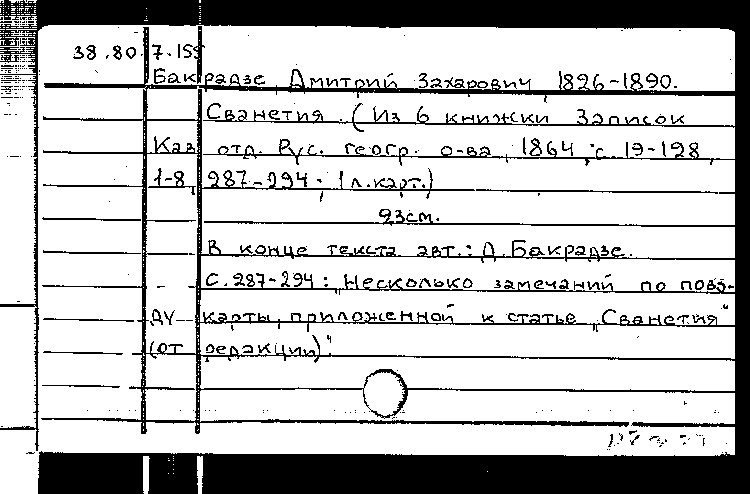 38.80.7.155
Бакрадзе, Дмитрий Захарович, 1826-1890.
Сванетия. (Из 6 книжки Записок
Кав отд. Рус. геогр. о-ва, 1864, с. 19-128,
1-8, 287-294; 1 л. карт.)
23см.
В конце текста авт.: Д. Бакрадзе.
С. 287-294: „Несколько замечаний по пово-
ду карты, приложенной к статье „Сванетия"
(от редакции)".